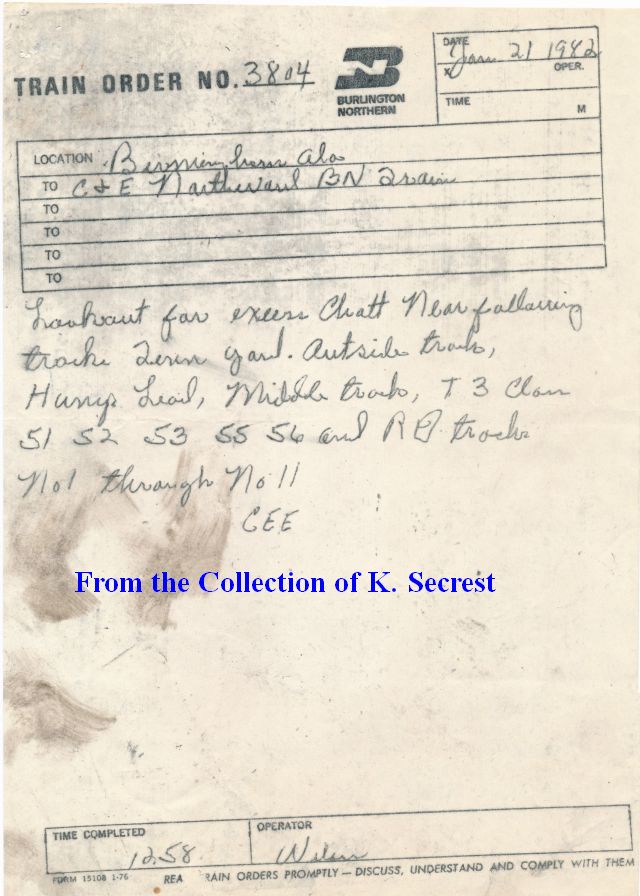 TRAIN ORDER NO. 3804
BURLINGTON
NORTHERN
DATE Jan. 21 1982
X OPER.
TIME M
LOCATION Birmingham Ala
TO C & E Northward BN Train
TO
TO
TO
TO
Lookout for excess Chatt Near following
tracks yard. Outside track,
Lead, Middle track, T 3 Class
51 52 53 55 56 and tracks
No 1 through No 11
CEE
From the Collection of K. Secrest
TIME COMPLETED
1258
OPERATOR
FORM 15108 1-76 REA RAIN ORDERS PROMPTLY — DISCUSS, UNDERSTAND AND COMPLY WITH THEM